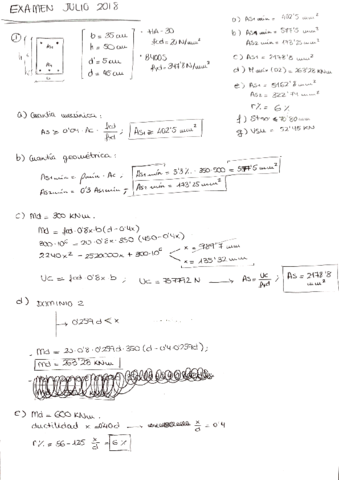 EXAMEN JULIO 2018
1
b = 35 cm
h = 50 cm
d' = 5 cm
d = 45 cm
HA-30
fcd = 20 N/mm²
B400S
fyd = 347'8 N/mm²
a) As1 min = 402'5 mm²
b) As1 min = 577'5 mm²
As2 min = 173'25 mm²
c) As1 = 2178'8 mm²
d) = 263'28 KNm
e) As1 = mm²
As2 = mm²
r% = 6%
f)
g) KN
a) Cuantía mecánica:
As ≥ 0'04 · Ac · fcd/fyd ; As1 ≥ 402'5 mm²
b) Cuantía geométrica:
As1 min = ρmin · Ac ; As1 min = 3'3‰ · 350·500 = 577'5 mm²
As2 min = 0'3 As1 min ; As2 min = 173'25 mm²
c) Md = 300 KNm.
Md = fcd · 0'8x · b (d - 0'4x)
300·10⁶ = 20 · 0'8x · 350 (450 - 0'4x)
2240x² - 2520000x + 300·10⁶
x = 989'7 mm
x = 135'32 mm
Uc = fcd · 0'8x · b ; Uc = 757792 N → As = Uc/fyd ; As = 2178'8 mm²
d) DOMINIO 2
0'259d < x
Md = 20 · 0'8 · 0'259d · 350 (d - 0'4·0'259d) ;
Md = 263'28 KNm
e) Md = 600 KNm.
ductilidad x = 0'40d → x/d = 0'4
r% = 56 - 125 x/d = 6%